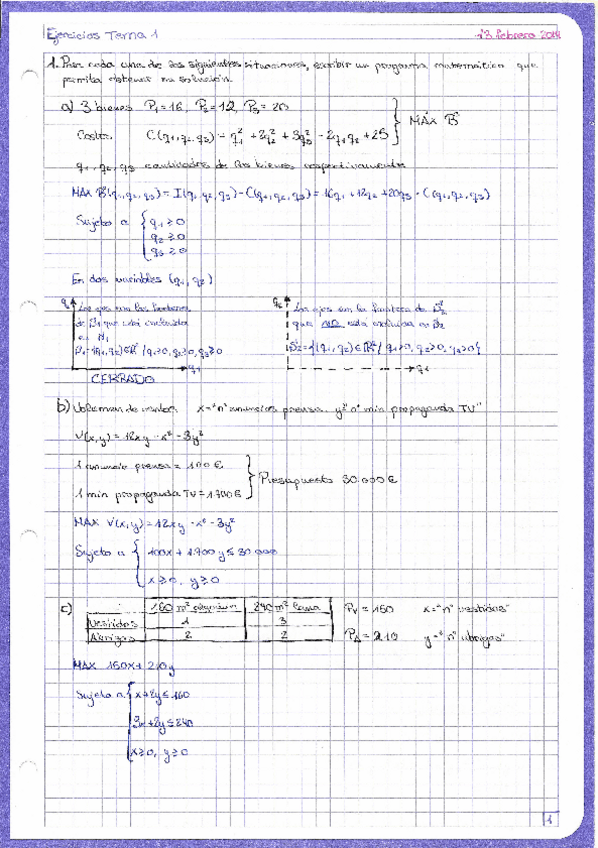 Ejercicios Tema 1
13 febrero
1. Para cada una de las siguientes situaciones, escribir un programa matemático que
permita obtener su solución.
a) 3 bienes P₁=16, P₂=12, P₃=20
MÁX B
Costes. C(q₁,q₂,q₃) = q₁² + 2q₂² + 3q₃² - 2q₁q₂ + 25
q₁, q₂, q₃ cantidades de los bienes respectivamente
MAX B(q₁,q₂,q₃) = I(q₁,q₂,q₃) - C(q₁,q₂,q₃) = 16q₁ + 12q₂ + 20q₃ - C(q₁,q₂,q₃)
Sujeto a q₁ ≥ 0
q₂ ≥ 0
q₃ ≥ 0
En dos variables (q₁, q₂)
Los ejes son la frontera
de B₁ que está incluida
Los ejes son la frontera de B₂
que NO está incluida en B₂
q₁
q₁
CERRADO
b) Volumen de ventas x="nº anuncios prensa. y="nº min propaganda TV"
V(x,y) = 12xy - x² - 3y²
1 anuncio prensa = 100€
Presupuesto 30.000€
1 min propaganda TV = 1.700€
MAX V(x,y) = 12xy - x² - 3y²
Sujeto a 100x + 1.700y ≤ 30.000
x ≥ 0, y ≥ 0
c) 160 m² algodón 240 m² lana
Pv = 150 x="nº vestidos"
Vestidos 1 3
Abrigos 2 2
PA = 210 y="nº abrigos"
MAX 150x + 210y
Sujeto a x+2y ≤ 160
3x+2y ≤ 240
x ≥ 0, y ≥ 0
1